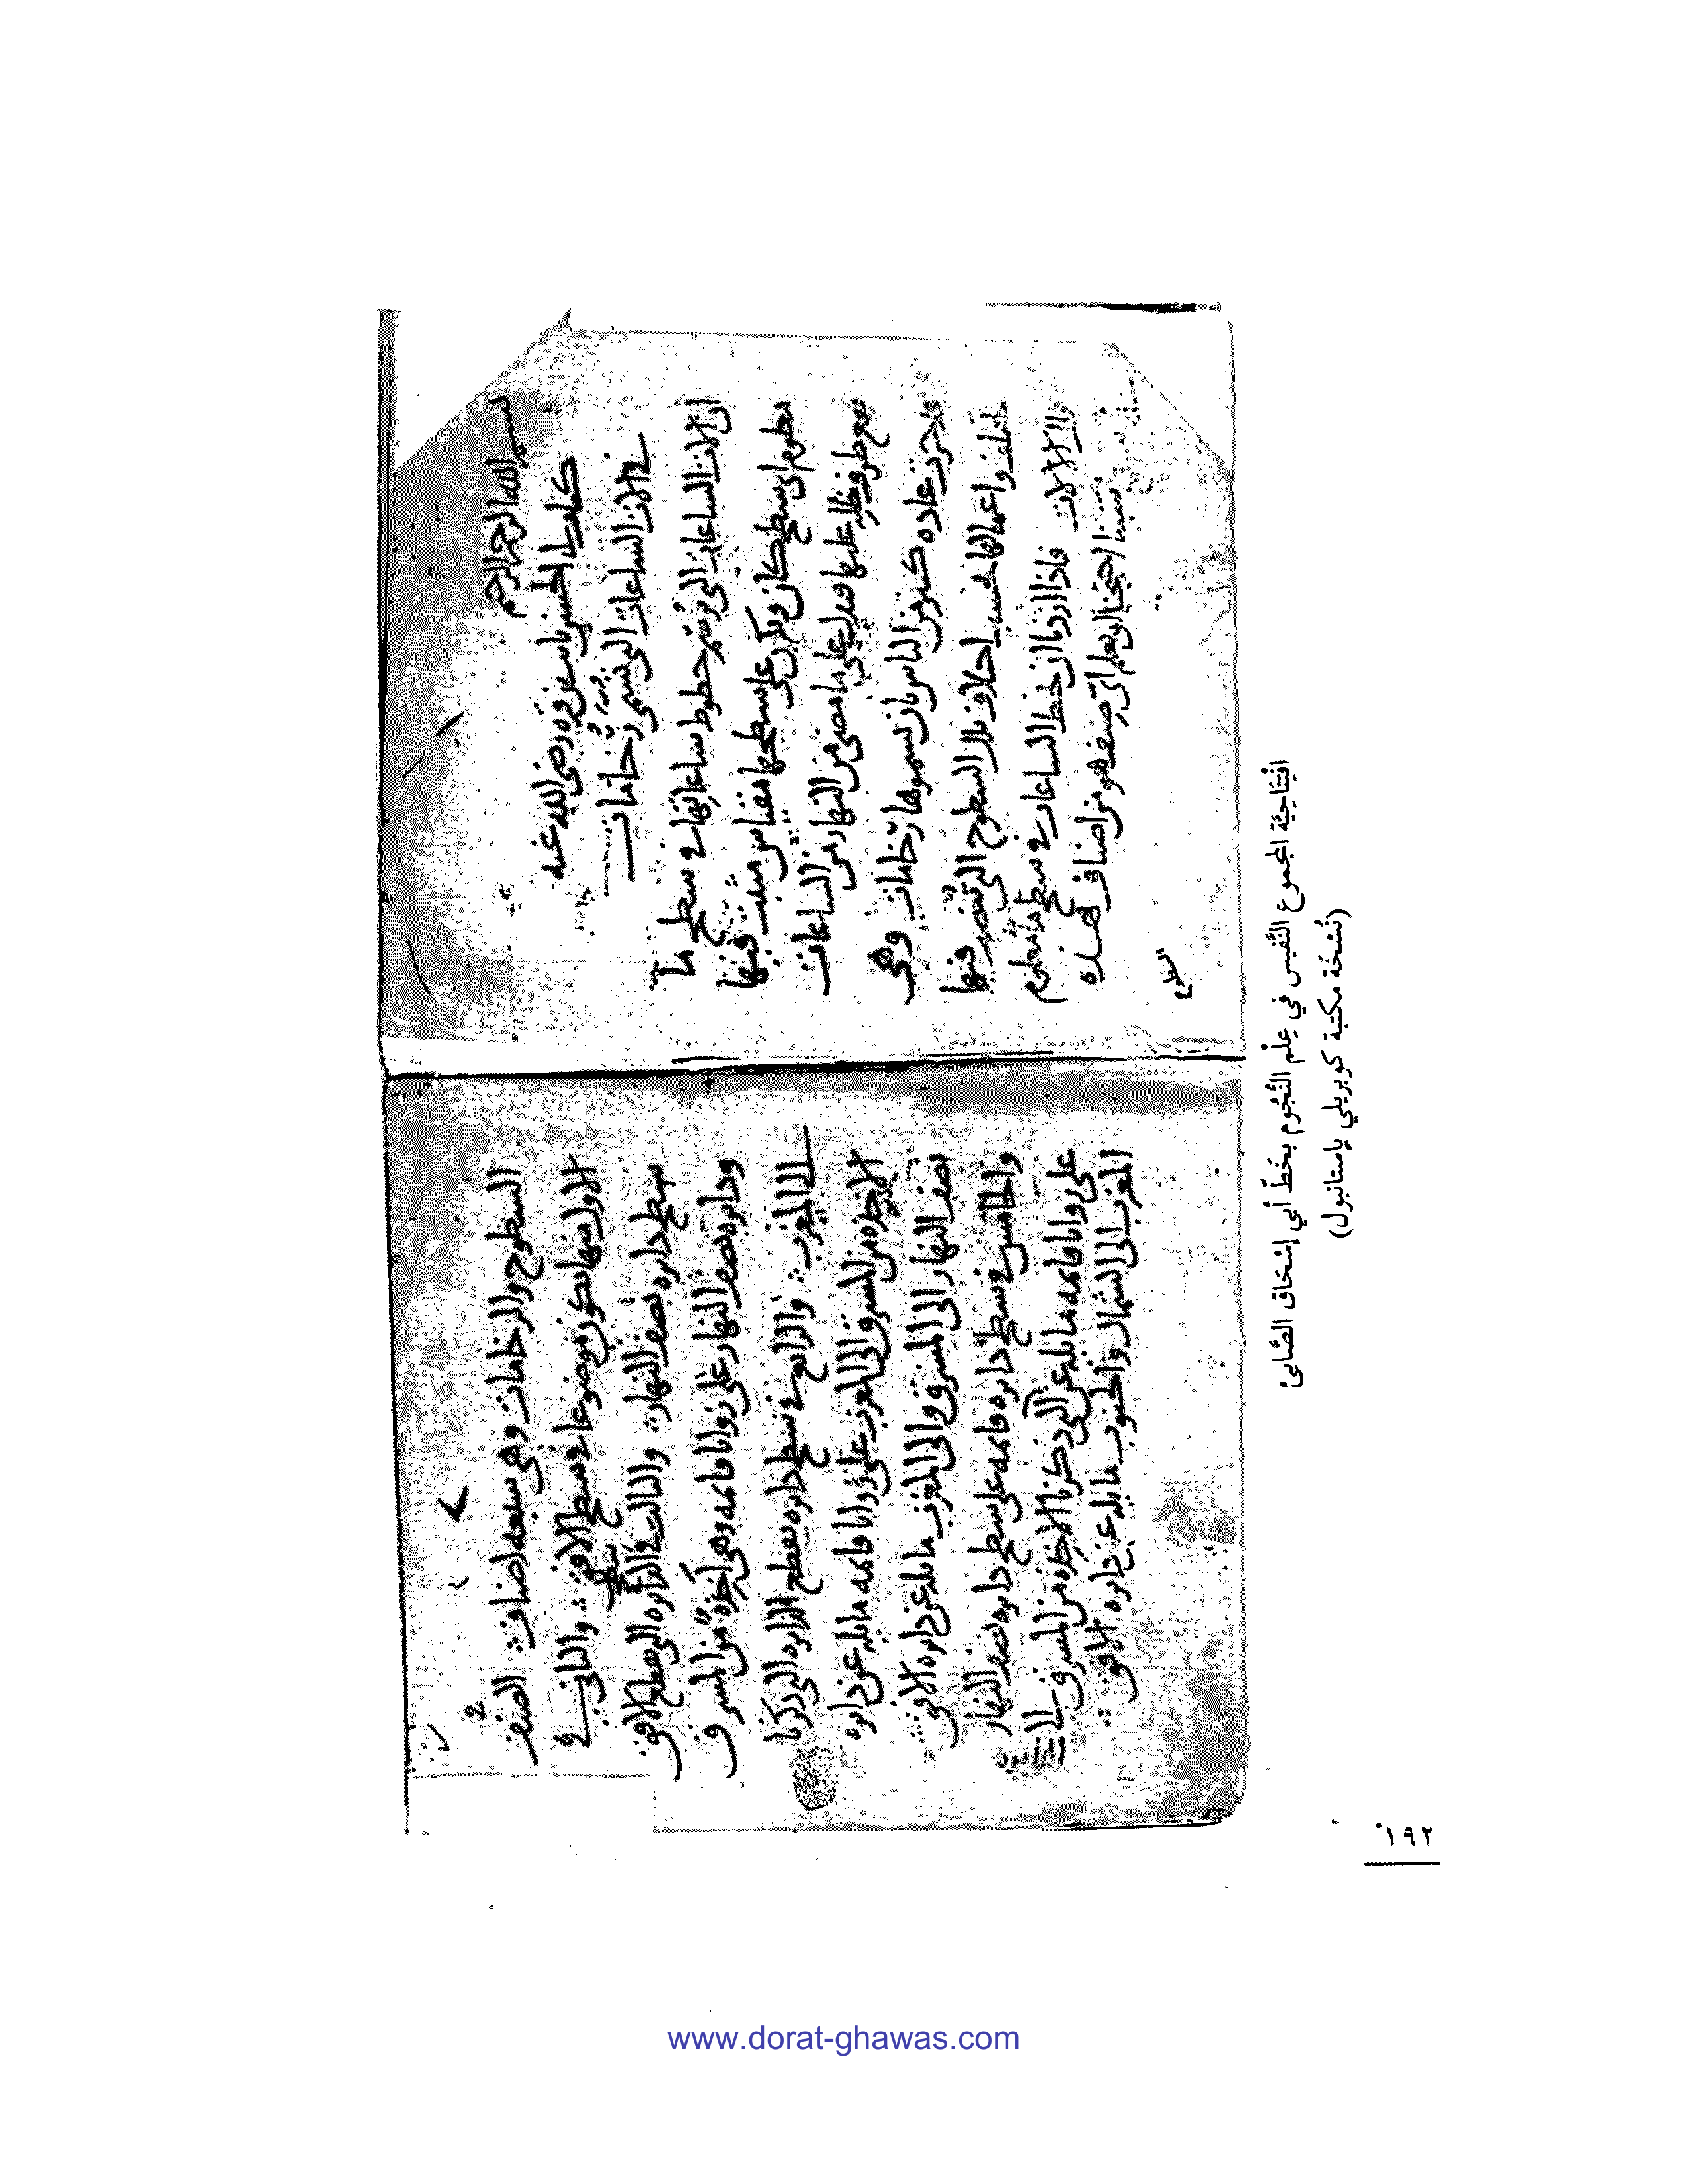 بسم الله الرحمن الرحيم
كتاب ثابت بن قره رضى الله عنه
فى الات الساعات التى تسمى رخامات
ان الات الساعات التى ترسم خطوط ساعاتها فى سطح ما
معلوم اى سطح كان ويكون على سطحها مقياس مثبت فيها
يقع طرف ظله عليها فيدل على ما مضى من النهار من الساعات
قد جرت عاده كثير من الناس بان يسموها رخامات وهى
تختلف واعمالها بحسب اختلاف تلك السطوح التى ترسم فيها
تلك الالات فاذا اردنا ان نخط الساعات فى سطح ما معلوم
احتجنا الى ان نعلم اى صنف هو من اصناف هذه
السطوح
السطوح والرخامات وهى سبعه اصناف الصنف
الاول منها يكون موضوعا فى سطح الافق والثانى فى
سطح دايره نصف النهار والثالث فى سطح الدايره التى تقطع الافق
ودايره نصف النهار على زوايا قايمه وهى آخذة من المشرق
الى المغرب والرابع فى سطح دايره تقطع الدايره التى ذكرنا
الاخذه من المشرق الى المغرب على زوايا قايمه مايله عن دايره
نصف النهار الى المشرق والى المغرب مايله عن دايره الافق
والخامس فى سطح دايره قايمه على سطح دايره نصف النهار
على زوايا قايمه مايله عن التى ذكرنا الاخذه من المشرق الى
المغرب الى الشمال والجنوب مايله عن دايره الافق
افتتاحيّة المجموع النّفيس في عِلْم النُّجُوم بخَطّ أبي إسْحَاق الصَّابئ
(نُسْخَة مكتبة كوبريلي بإستانبول)
١٩٢
www.dorat-ghawas.com